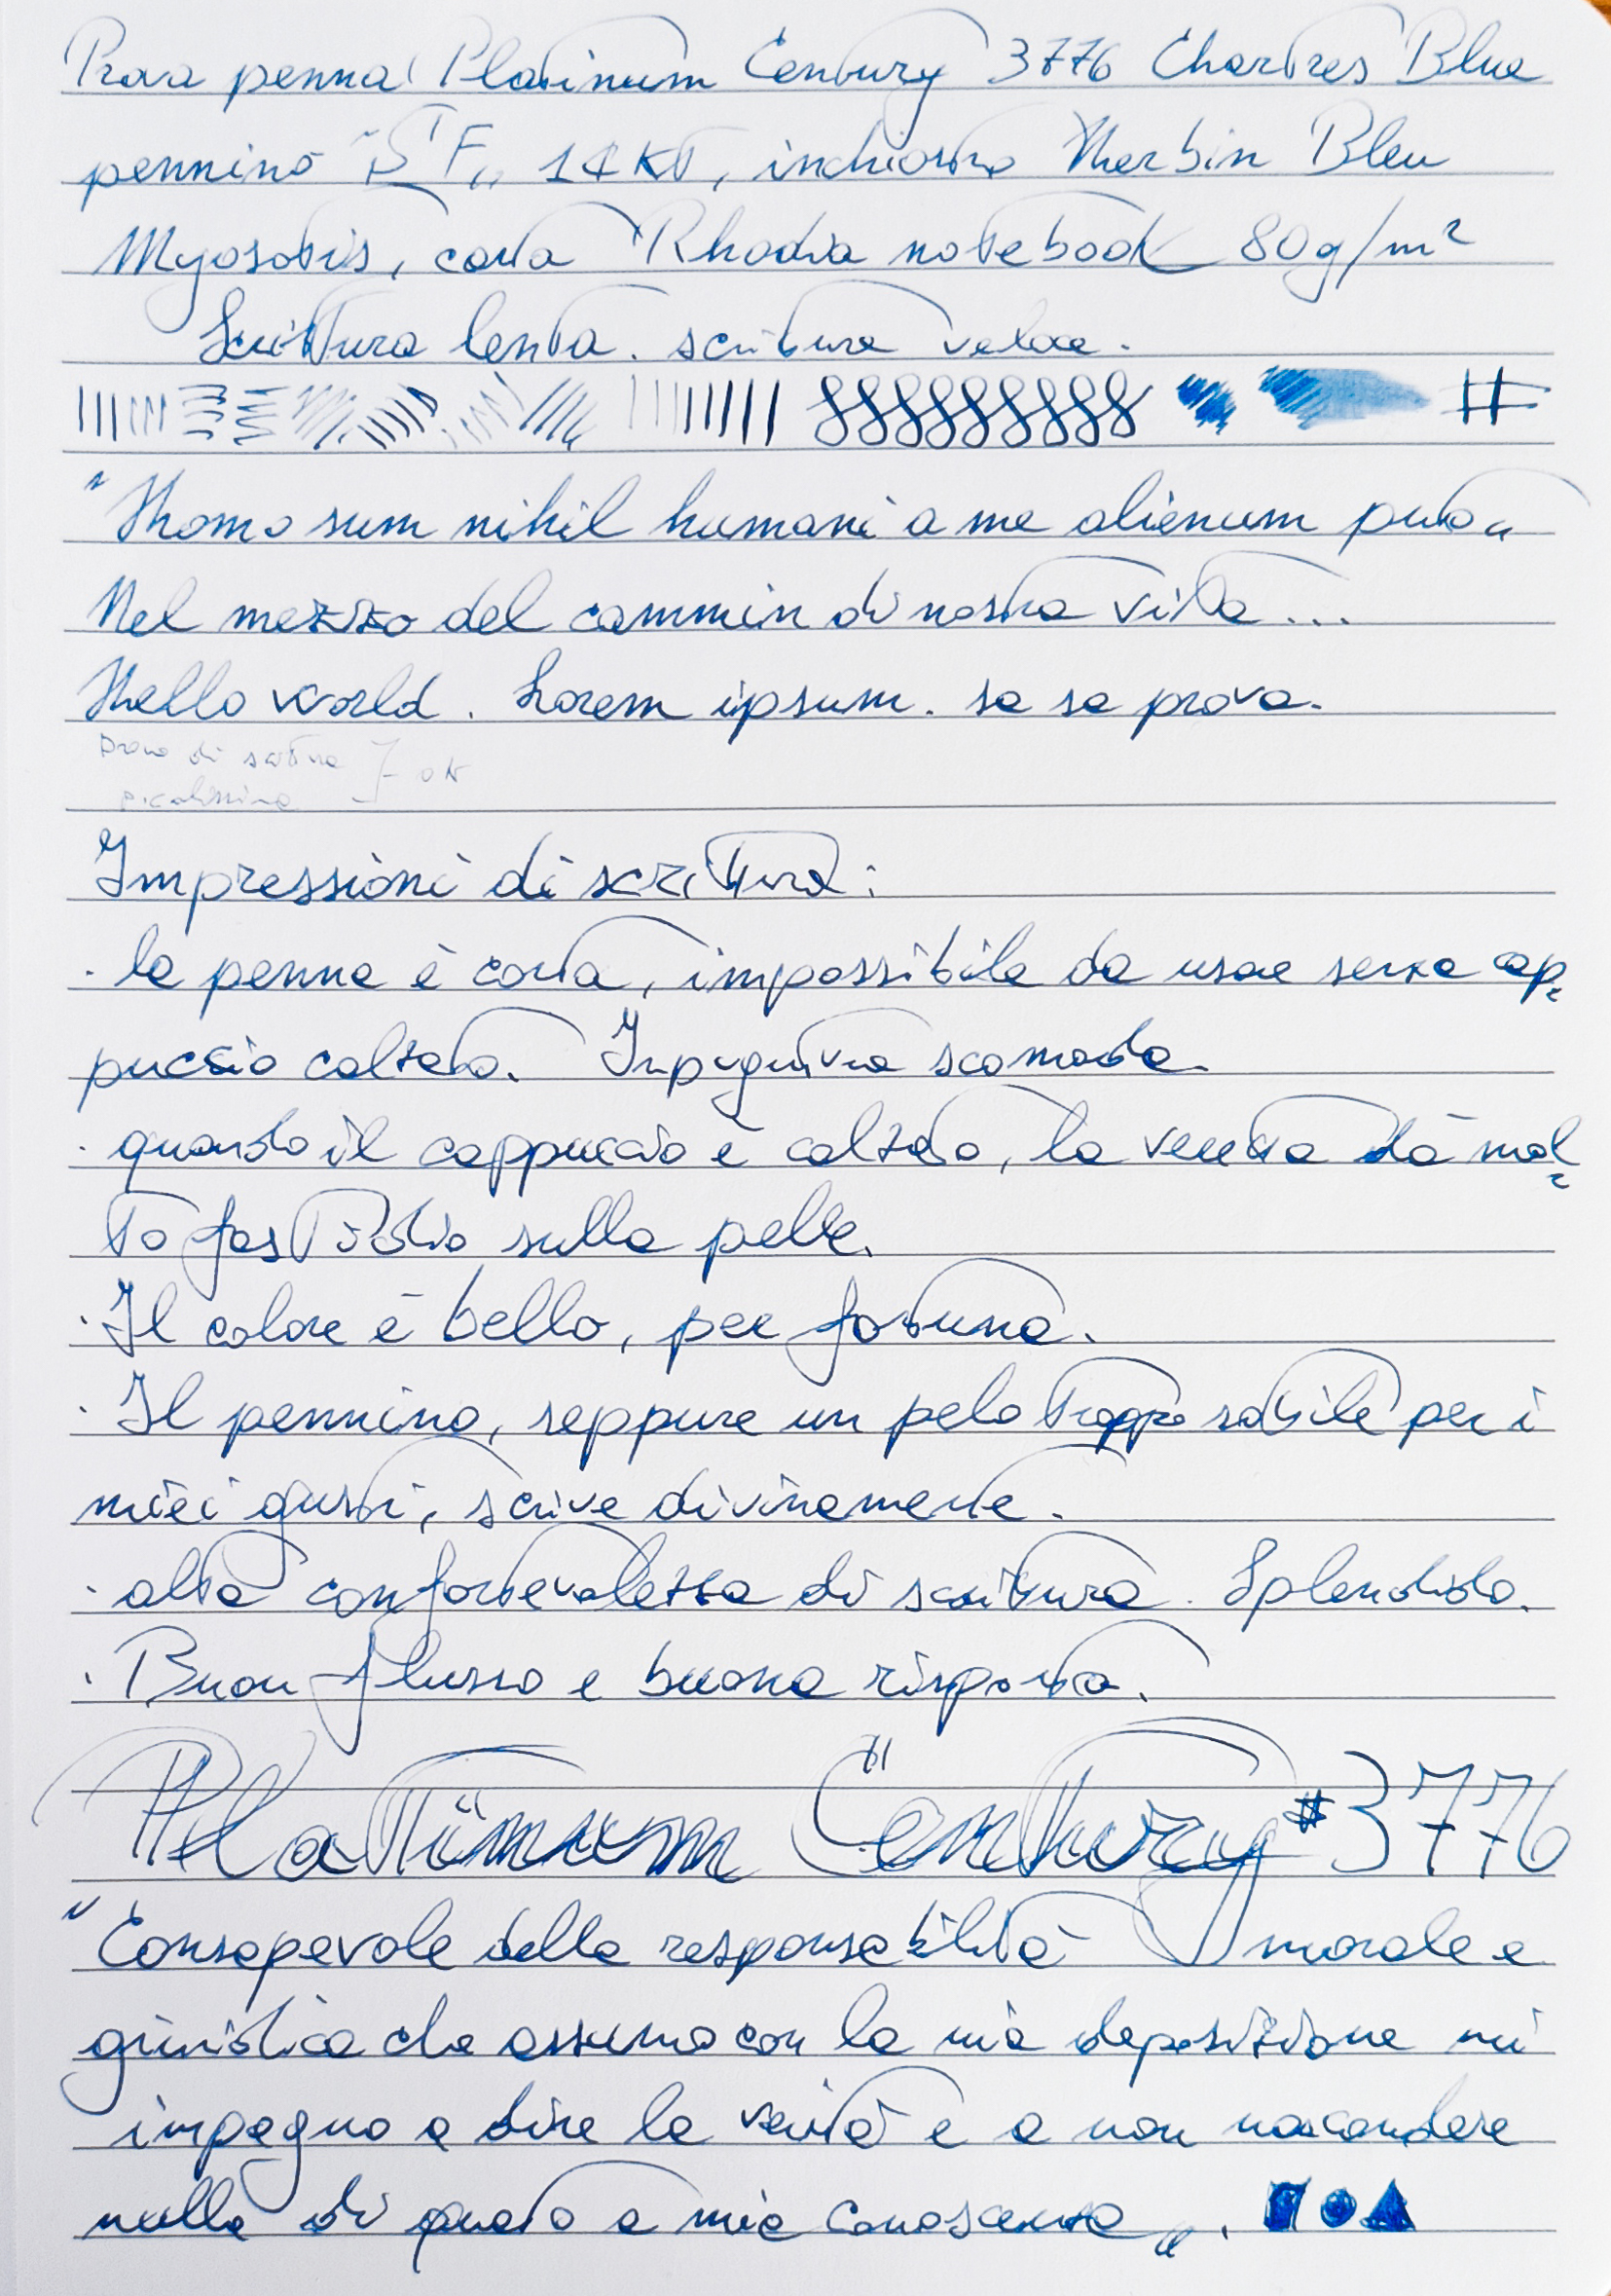 Prova penna Platinum Century 3776 Chartres Blue
pennino "SF„ 14Kt, inchiostro Herbin Bleu
Myosotis, carta Rhodia notebook 80g/m²
Scrittura lenta. scrittura veloce.
#
"Homo sum nihil humani a me alienum puto„
Nel mezzo del cammin di nostra vita...
Hello world. Lorem ipsum. sa sa prova.
Prova di scrittura } ok
piccolissima
Impressioni di scrittura:
· la penna è corta, impossibile da usare senza cap-
puccio calzato. Inpugnatura scomoda.
· quando il cappuccio è calzato, la veretta dà mol-
to fastidio sulla pelle.
· Il colore è bello, per fortuna.
· Il pennino, seppure un pelo troppo sottile per i
miei gusti, scrive divinamente.
· alta confortevolezza di scrittura. Splendido.
· Buon flusso e buona risposta.
Platinum Century #3776
"Consapevole della responsabilità morale e
giuridica che assumo con la mia deposizione mi
impegno a dire la verità e a non nascondere
nulla di quanto a mia conoscenza„.